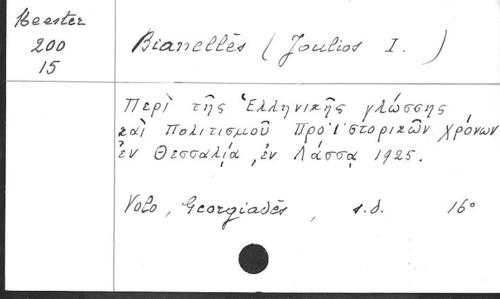 Meester
200
15
Bianellēs (Joulios I.)
Περὶ τῆς Ἑλληνικῆς γλώσσης
καὶ πολιτισμοῦ προϊστορικῶν χρόνων
ἐν Θεσσαλίᾳ, ἐν Λάσσᾳ 1925.
Volo, Georgiadēs, s.d. 16°